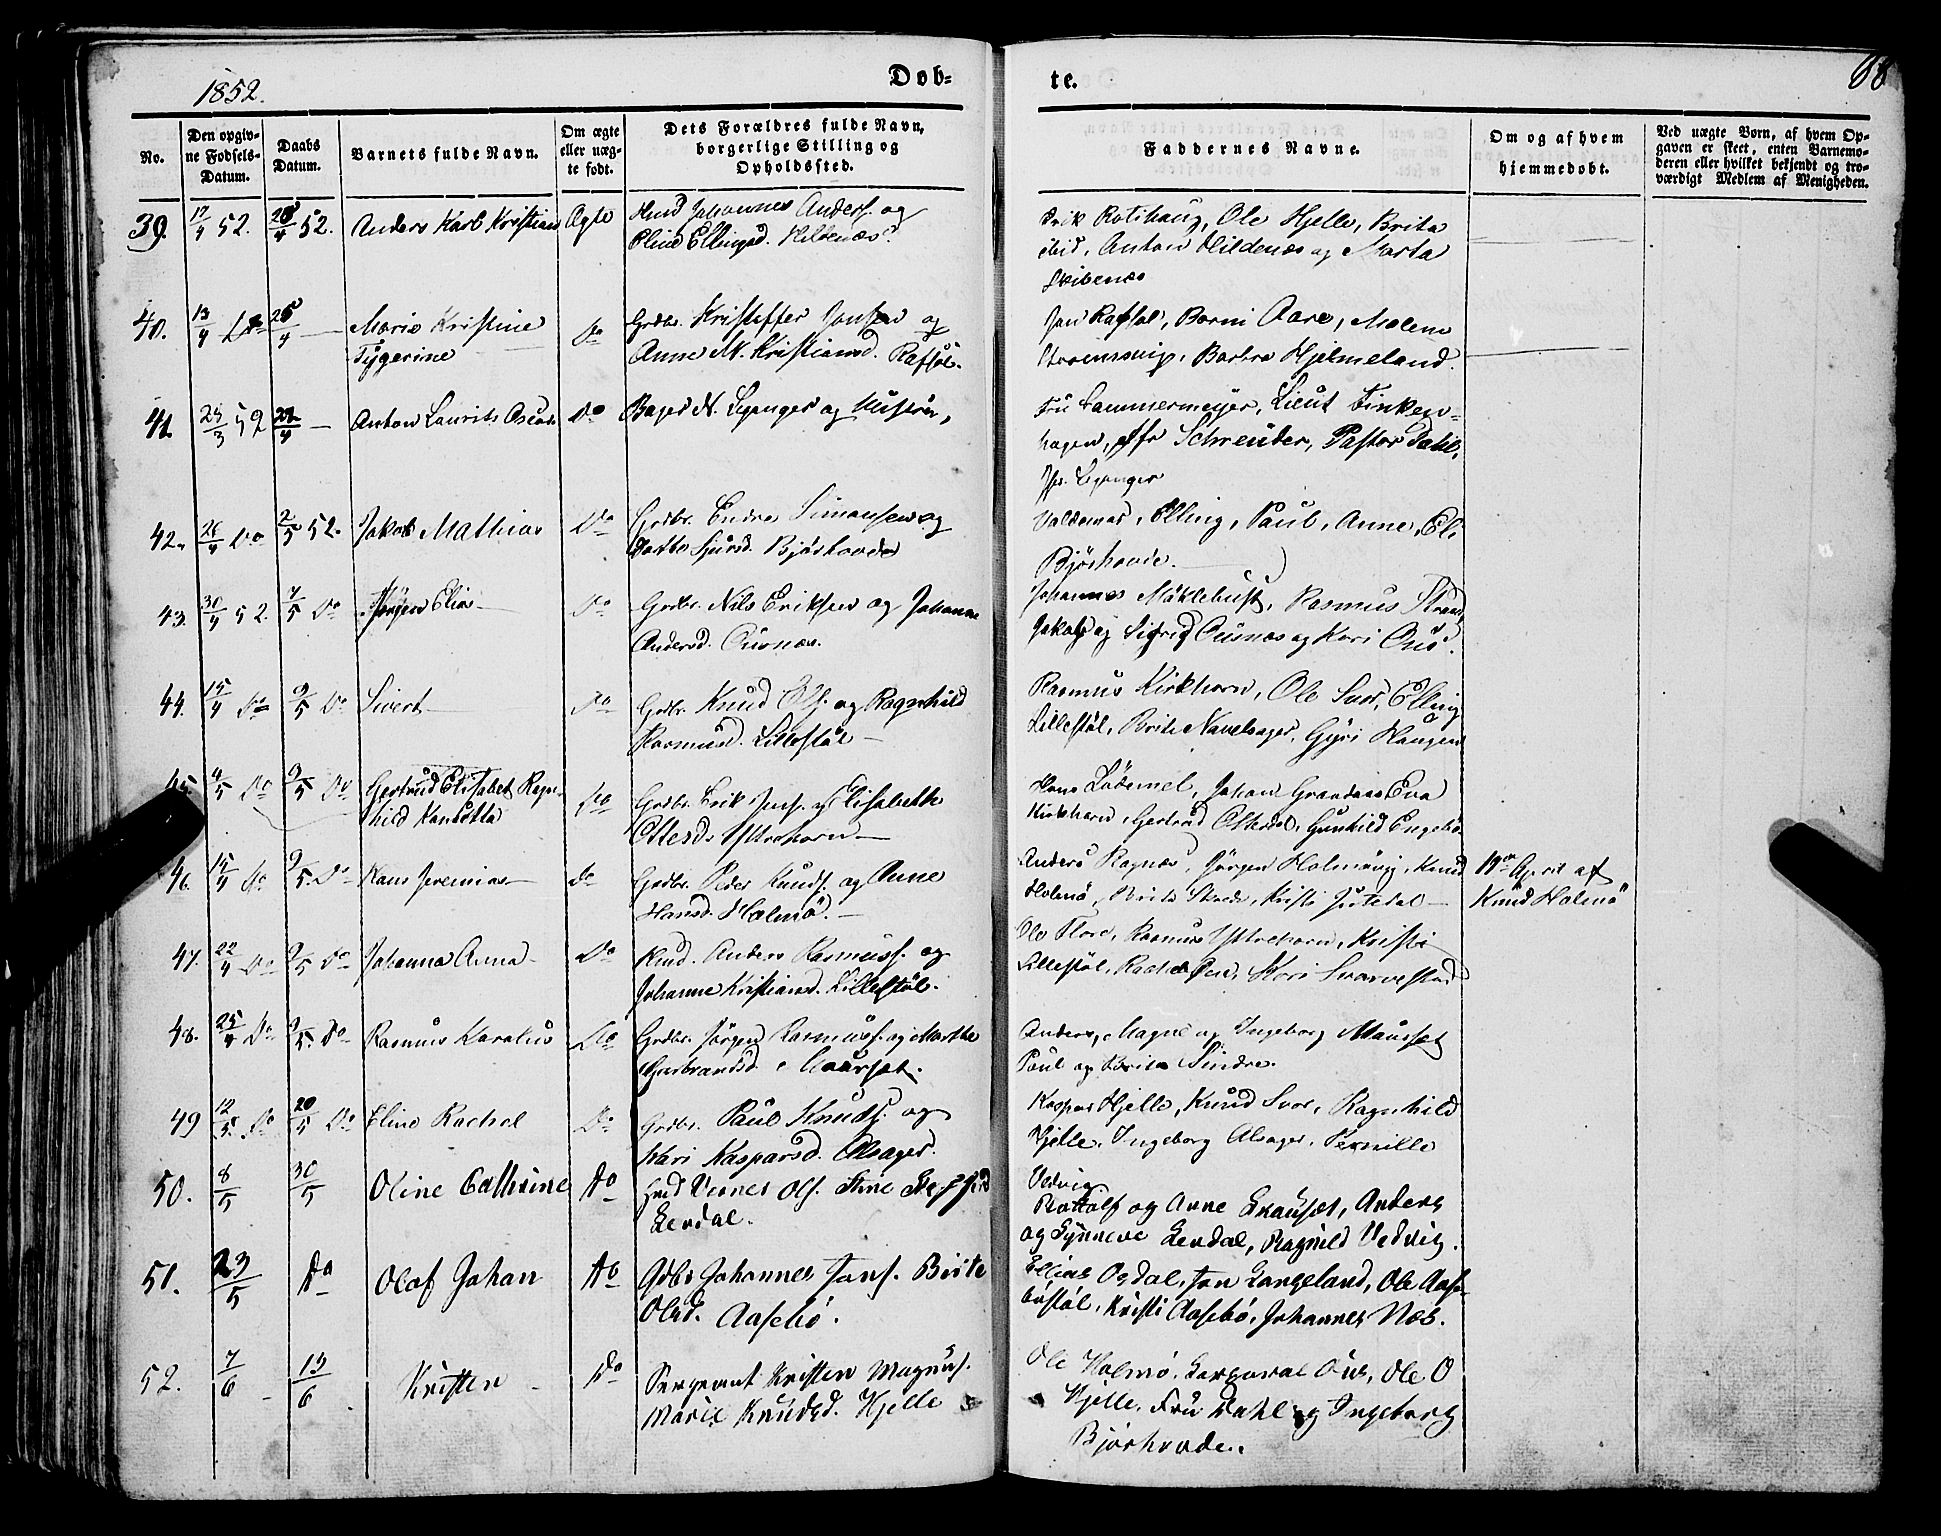 1852.
Døb-
te.
68
No.
Den opgiv-
ne Fødsels-
Datum.
Daabs
Datum.
Barnets fulde Navn.
Om ægte
eller uæg-
te født.
Dets Forældres fulde Navn,
borgerlige Stilling og
Opholdssted.
Faddernes Navne.
Om og af hvem
hjemmedøbt.
Ved uægte Børn, af hvem Op-
gaven er skeet, enten Barnemo-
deren eller hvilket bekjendt og tro-
værdigt Medlem af Menigheden.
39. 17/4 52. 52. Anders Karl Kristian Ægte Johannes Anders. og
Eline Ellingsd. Hildenæs.
Erik Rotihaug, Ole Hjelle, Brita
ibid, Anton Hildenæs og Marta
Skibenæs
40. 13/4 Do Marie Kristine
Tygerine
Do Grdbr. Kristoffer Jonsen og
Anne M. Kristiansd. Rafsøl.
Jon Rafsøl, Borni Aare, Malene
Barbro Hjelmeland.
41. 52 Anton Laurits Do Bager N. Leganger og Hustru,
Fru Lammermeyer, Lieut Finken-
hagen, Schreuder, Pastor Dahl,
Jfr. Leganger
42. 26/4 Do 2/5 52. Jakob Mathias Do Grdbr. Endre Simonsen og
Sjursd. Bjørhovde
Valdemar, Elling, Paul, Anne, El.
Bjørhovde.
43. 30/4 52. 7/5 Do Jørgen Elias Do Grdbr. Nils Eriksen og Johanne
Andersd. Ousnæs.
Johannes Møklebust, Rasmus Strand,
Jakob og Sigrid Ousnæs og Kari Ous.
44. 15/4 Do 9/5 Do Sivert Do Grdbr. Knud Ols. og Ragnhild
Rasmusd. Lillestøl
Rasmus Kirkhorn, Ole Svor, Elling
Lillestøl, Brite Navelsager, Gyri Haugen
45. 4/5 Do 9/5 Do Gertrud Elisabet Ragn-
hild
Do Grdbr. Erik Jens. og Elisabeth
Ollesd. Yttrehorn
Hans Lødemel, Johan Grandaas Eva
Kirkhorn, Gertrud Gunhild Engebø
46. 15/4 Do 9/5. Do Hans Jeremias Do Grdbr. Peder Knuds. og Anne
Hansd. Holmø.
Anders Ragnæs, Jørgen Holmøvig, Knud
Holmø, Brita Kristi
April af
Knud Holmø
47. 22/4 Do 9/5 Do Johanna Anna Do Hmd. Anders Rasmuss. og
Johanne Kristiansd. Lillestøl.
Ole Flore, Rasmus Yttrehorn, Kristi
Lillestøl, Rachel Kari Svarvestad
48. 25/4 Do 9/5. Do Rasmus Karolus Do Grdbr. Jørgen Rasmuss. og Marthe
Gurbrandsd. Maurset.
Anders, Magne og Ingeborg Maurset
Paul og Brita Sindre.
49 12/5. Do 20/5 Do Eline Rachel Do Grdbr. Paul Knuds. og
Kari Kaspersd. Alsager.
Kasper Hjelle, Knud Svor, Ragnhild
Hjelle, Ingeborg Alsager, Pernille
Vedvig
50. 8/5 30/5 Oline Cathrine Do Hmd Verner Ols. Stine
Levdal.
og Anne Anders
og Synneve Levdal, Ragnild Vedvig.
51. 23/5 Do Olaf Johan Do Gdbr Johannes Jons. Brite
Olsd. Aasebø.
Elias Osdal, Jon Langeland, Ole Aase-
bøstøl, Kristi Aasebø, Johannes Næs.
52. 7/6 13/6 Kristen Do Sergeant Kristen Magnus.
Marie Knudsd. Hjelle
Ole Holmø, Ous, Ole O
Hjelle, Fru Dahl og Ingeborg
Bjørhovde.